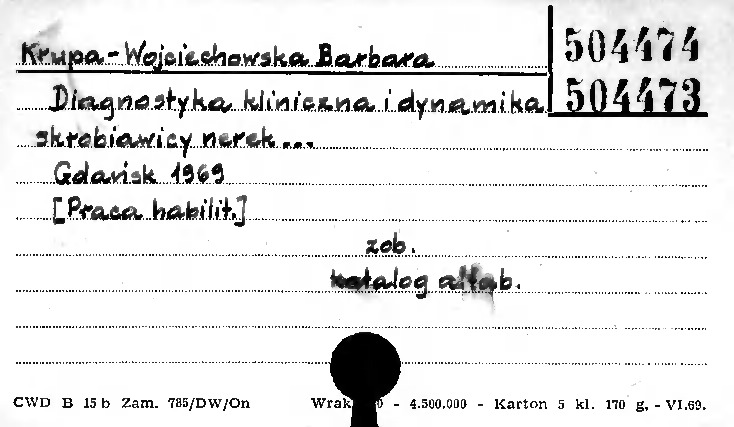 Krupa-Wojciechowska Barbara
504474
504473
Diagnostyka kliniczna i dynamika
skrobiawicy nerek...
Gdańsk 1969
[Praca habilit.]
zob.
katalog alfab.
CWD B 15 b Zam. 785/DW/On - 4.500.000 - Karton 5 kl. 170 g. - VI.69.